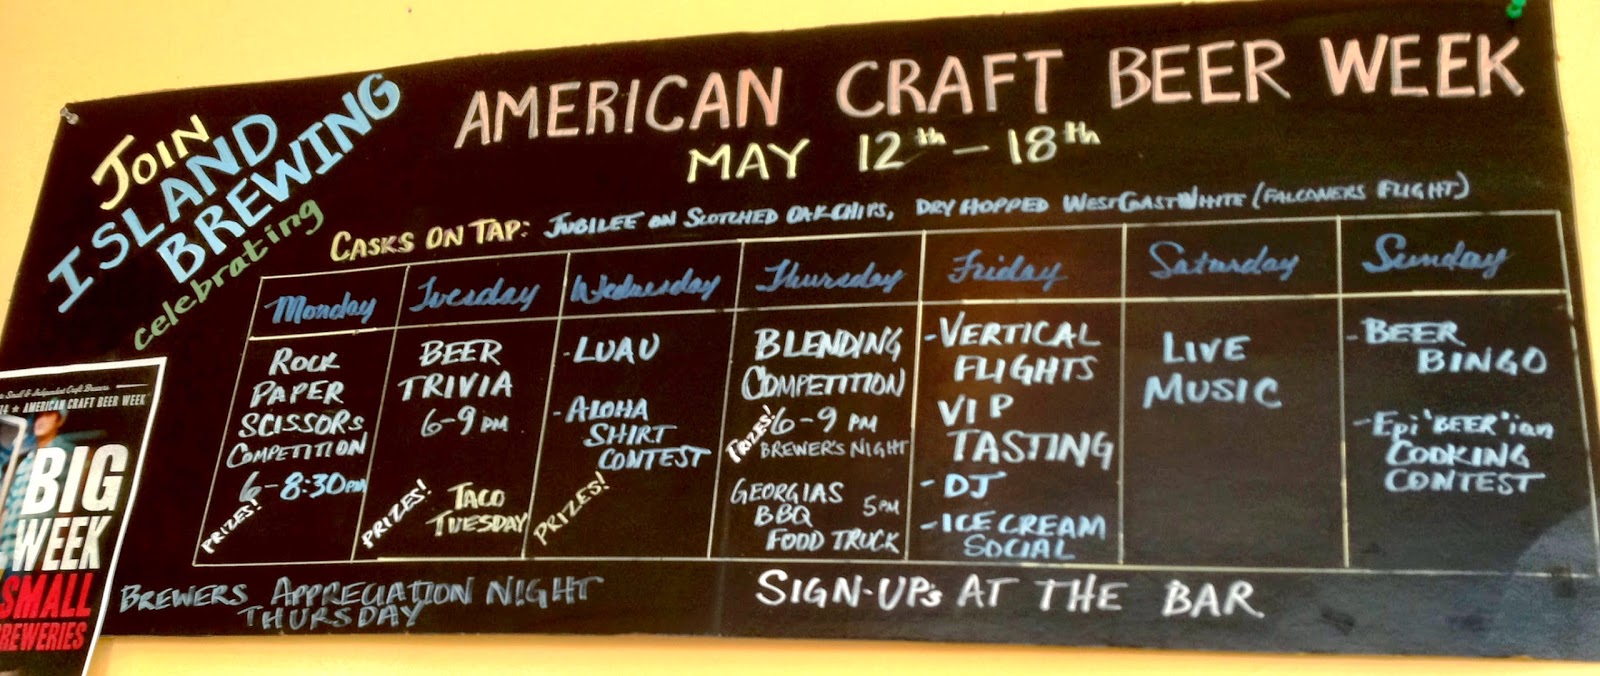 JOIN
ISLAND
BREWING
celebrating
AMERICAN CRAFT BEER WEEK
MAY 12th - 18th
CASKS ON TAP: JUBILEE ON SCOTCHED OAK CHIPS, DRY HOPPED WEST COAST WHITE (FALCONERS FLIGHT)
Monday
ROCK
PAPER
SCISSORS
COMPETITION
6-8:30PM
PRIZES!
Tuesday
BEER
TRIVIA
6-9 PM
PRIZES!
TACO
TUESDAY
Wednesday
- LUAU
- ALOHA
SHIRT
CONTEST
PRIZES!
Thursday
BLENDING
COMPETITION
PRIZES!
6-9 PM
BREWER'S NIGHT
GEORGIAS 5PM
BBQ
FOOD TRUCK
Friday
- VERTICAL
FLIGHTS
VIP
TASTING
- DJ
- ICE CREAM
SOCIAL
Saturday
LIVE
MUSIC
Sunday
- BEER
BINGO
- Epi'BEER'ian
COOKING
CONTEST
BREWERS APPRECIATION NIGHT
THURSDAY
SIGN-UP's AT THE BAR
Small & Independent Craft Brewers
14 ★ AMERICAN CRAFT BEER WEEK
BIG
WEEK
SMALL
BREWERIES